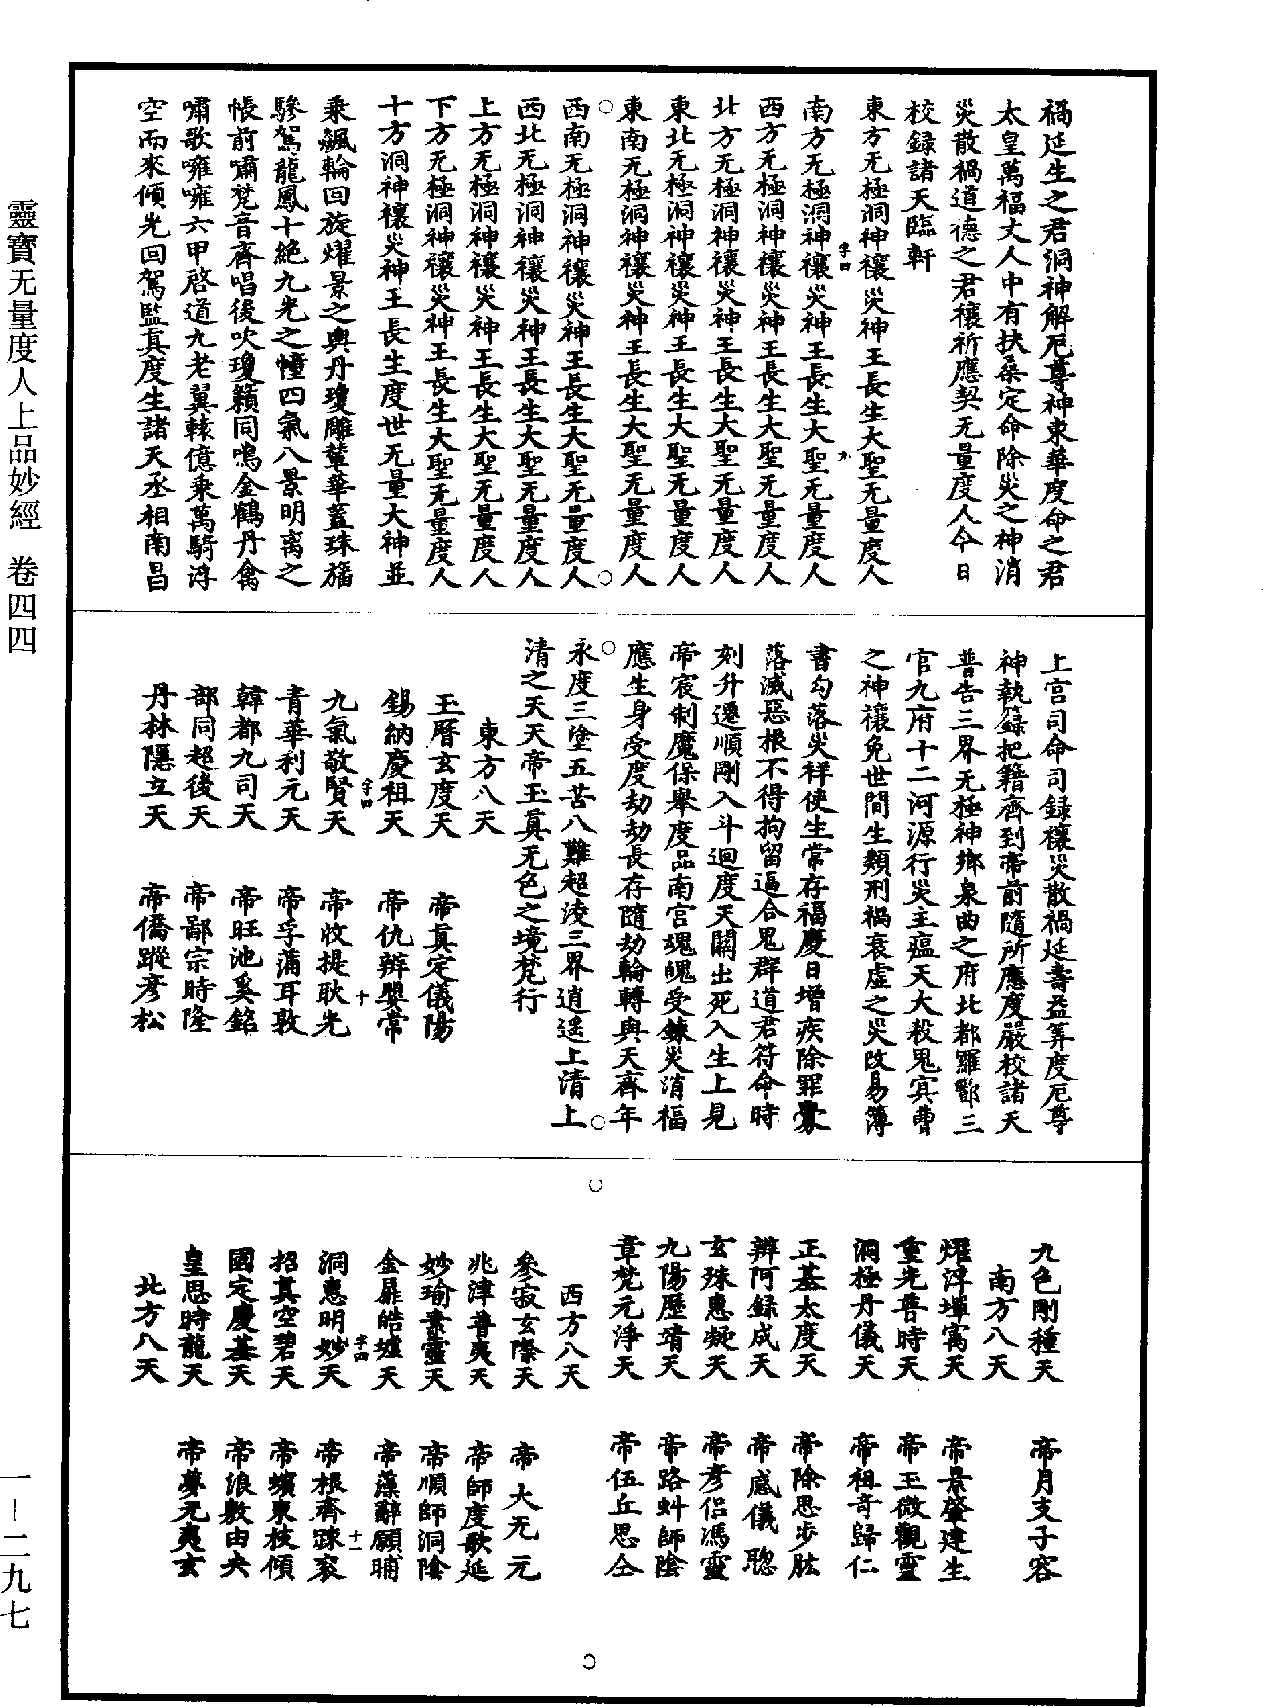 禍延生之君洞神解厄尊神東華度命之君
太皇萬福丈人中有扶桑定命除災之神消
災散禍道德之君禳祈應契无量度人今日
校錄諸天臨軒
東方无極洞神禳災神王長生大聖无量度人
南方无極洞神禳災神王長生大聖无量度人
西方无極洞神禳災神王長生大聖无量度人
北方无極洞神禳災神王長生大聖无量度人
東北无極洞神禳災神王長生大聖无量度人
東南无極洞神禳災神王長生大聖无量度人
西南无極洞神禳災神王長生大聖无量度人
西北无極洞神禳災神王長生大聖无量度人
上方无極洞神禳災神王長生大聖无量度人
下方无極洞神禳災神王長生大聖无量度人
十方洞神禳災神王長生度世无量大神並
乘飆輪回旋燿景之輿丹瓊雕輦華蓋珠旛
驂駕龍鳳十絕九光之幢四氣八景明离之
帳前嘯梵音齊唱後吹瓊籟同鳴金鶴丹禽
嘯歌嗈嗈六甲啓道九老翼轅億乘萬騎浮
空而來傾光回駕監真度生諸天丞相南昌
上宮司命司錄禳災散禍延壽益筭度厄尊
神執籙把籍齊到帝前隨所應度嚴校諸天
普告三界无極神鄉泉曲之府北都羅酆三
官九府十二河源行災主瘟天大殺鬼冥曹
之神禳免世間生類刑禍衰虛之災改易簿
書勾落災祥使生常存福慶日增疾除罪釁
落滅惡根不得拘留逼合鬼群道君符命時
刻升遷順剛入斗迴度天關出死入生上見
帝宸制魔保舉度品南宮魂魄受鍊災消福
應生身受度劫劫長存隨劫輪轉與天齊年
永度三塗五苦八難超淩三界逍遙上清上
清之天天帝玉真无色之境梵行
東方八天
玉曆玄度天　帝真定儀陽
錫納慶祖天　帝仇辨嬰常
九氣敬賢天　帝收提耿光
青華利元天　帝孚蒲耳敦
韓都九司天　帝旺池奚銘
部同超後天　帝鄢宗時隆
丹林隱立天　帝僑蹤彥松
九色剛種天　帝月支子容
南方八天
燿渟墠寯天　帝景發建生
重光普時天　帝王微觀靈
洞極丹儀天　帝祖奇歸仁
正基太度天　帝除思步肱
辨阿錄成天　帝感儀聰
玄殊惠凝天　帝彥侶馮靈
九陽歷㵾天　帝路虯師陰
章梵元淨天　帝伍丘思仝
西方八天
參寂玄際天　帝大无元
兆津普夷天　帝師度歌延
妙瑜素靈天　帝順師洞陰
金扉皓墟天　帝藻辭願晡
洞惠明妙天　帝根齊踈衮
招真空碧天　帝蠙東枝傾
國定慶基天　帝浪敷由央
皇思時龍天　帝夢元夷玄
北方八天
靈寶无量度人上品妙經　卷四四
一-二九七
字四
九
字四
十
字四
十一